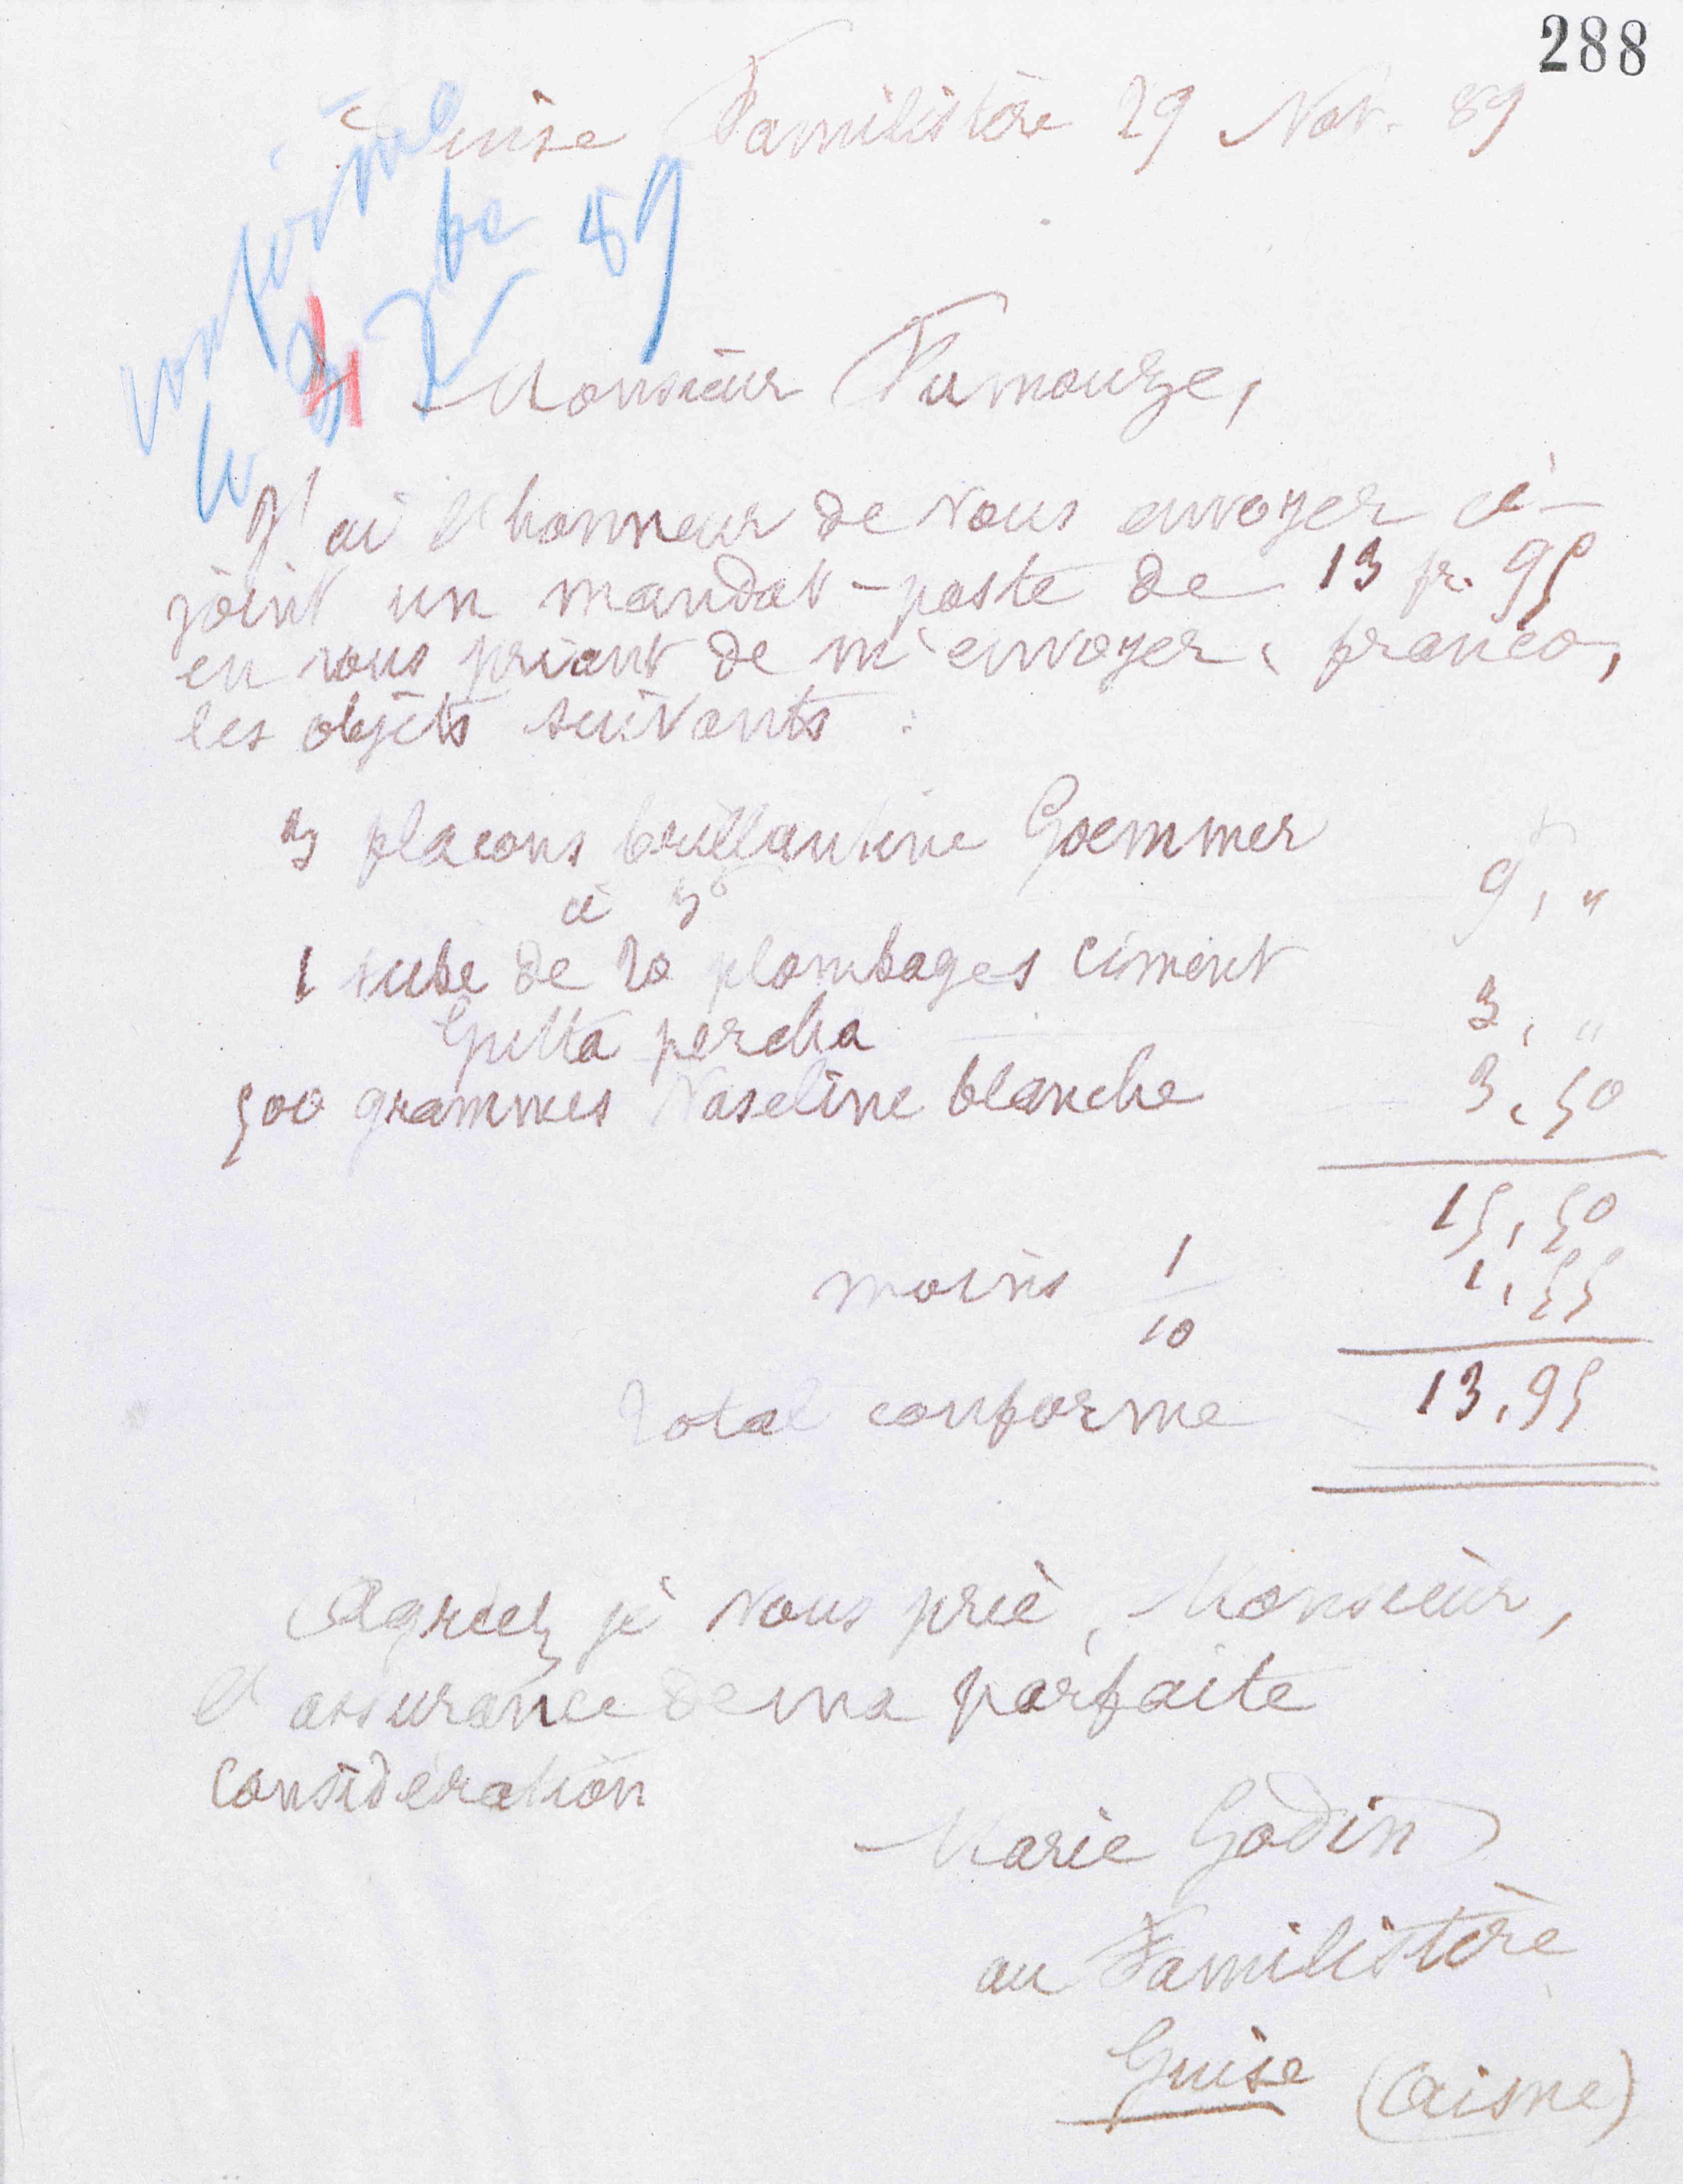 288
Guise Familistère 29 Nov. 89
conforme
le 3 Xbre 89
4
Monsieur Fumouze,
J'ai l'honneur de vous envoyer ci-
joint un mandat-poste de 13 fr. 95
en vous priant de m'envoyer, franco,
les objets suivants :
3 flacons brillantine Goemmer
à 3f
9, "
1 tube de 20 plombages ciment
Gutta percha 3, "
500 grammes Vaseline blanche 3,50
15,50
moins 1/10 1,55
Total conforme 13,95
Agréez, je vous prie, Monsieur,
l'assurance de ma parfaite
considération
Marie Godin
au Familistère
Guise (Aisne)